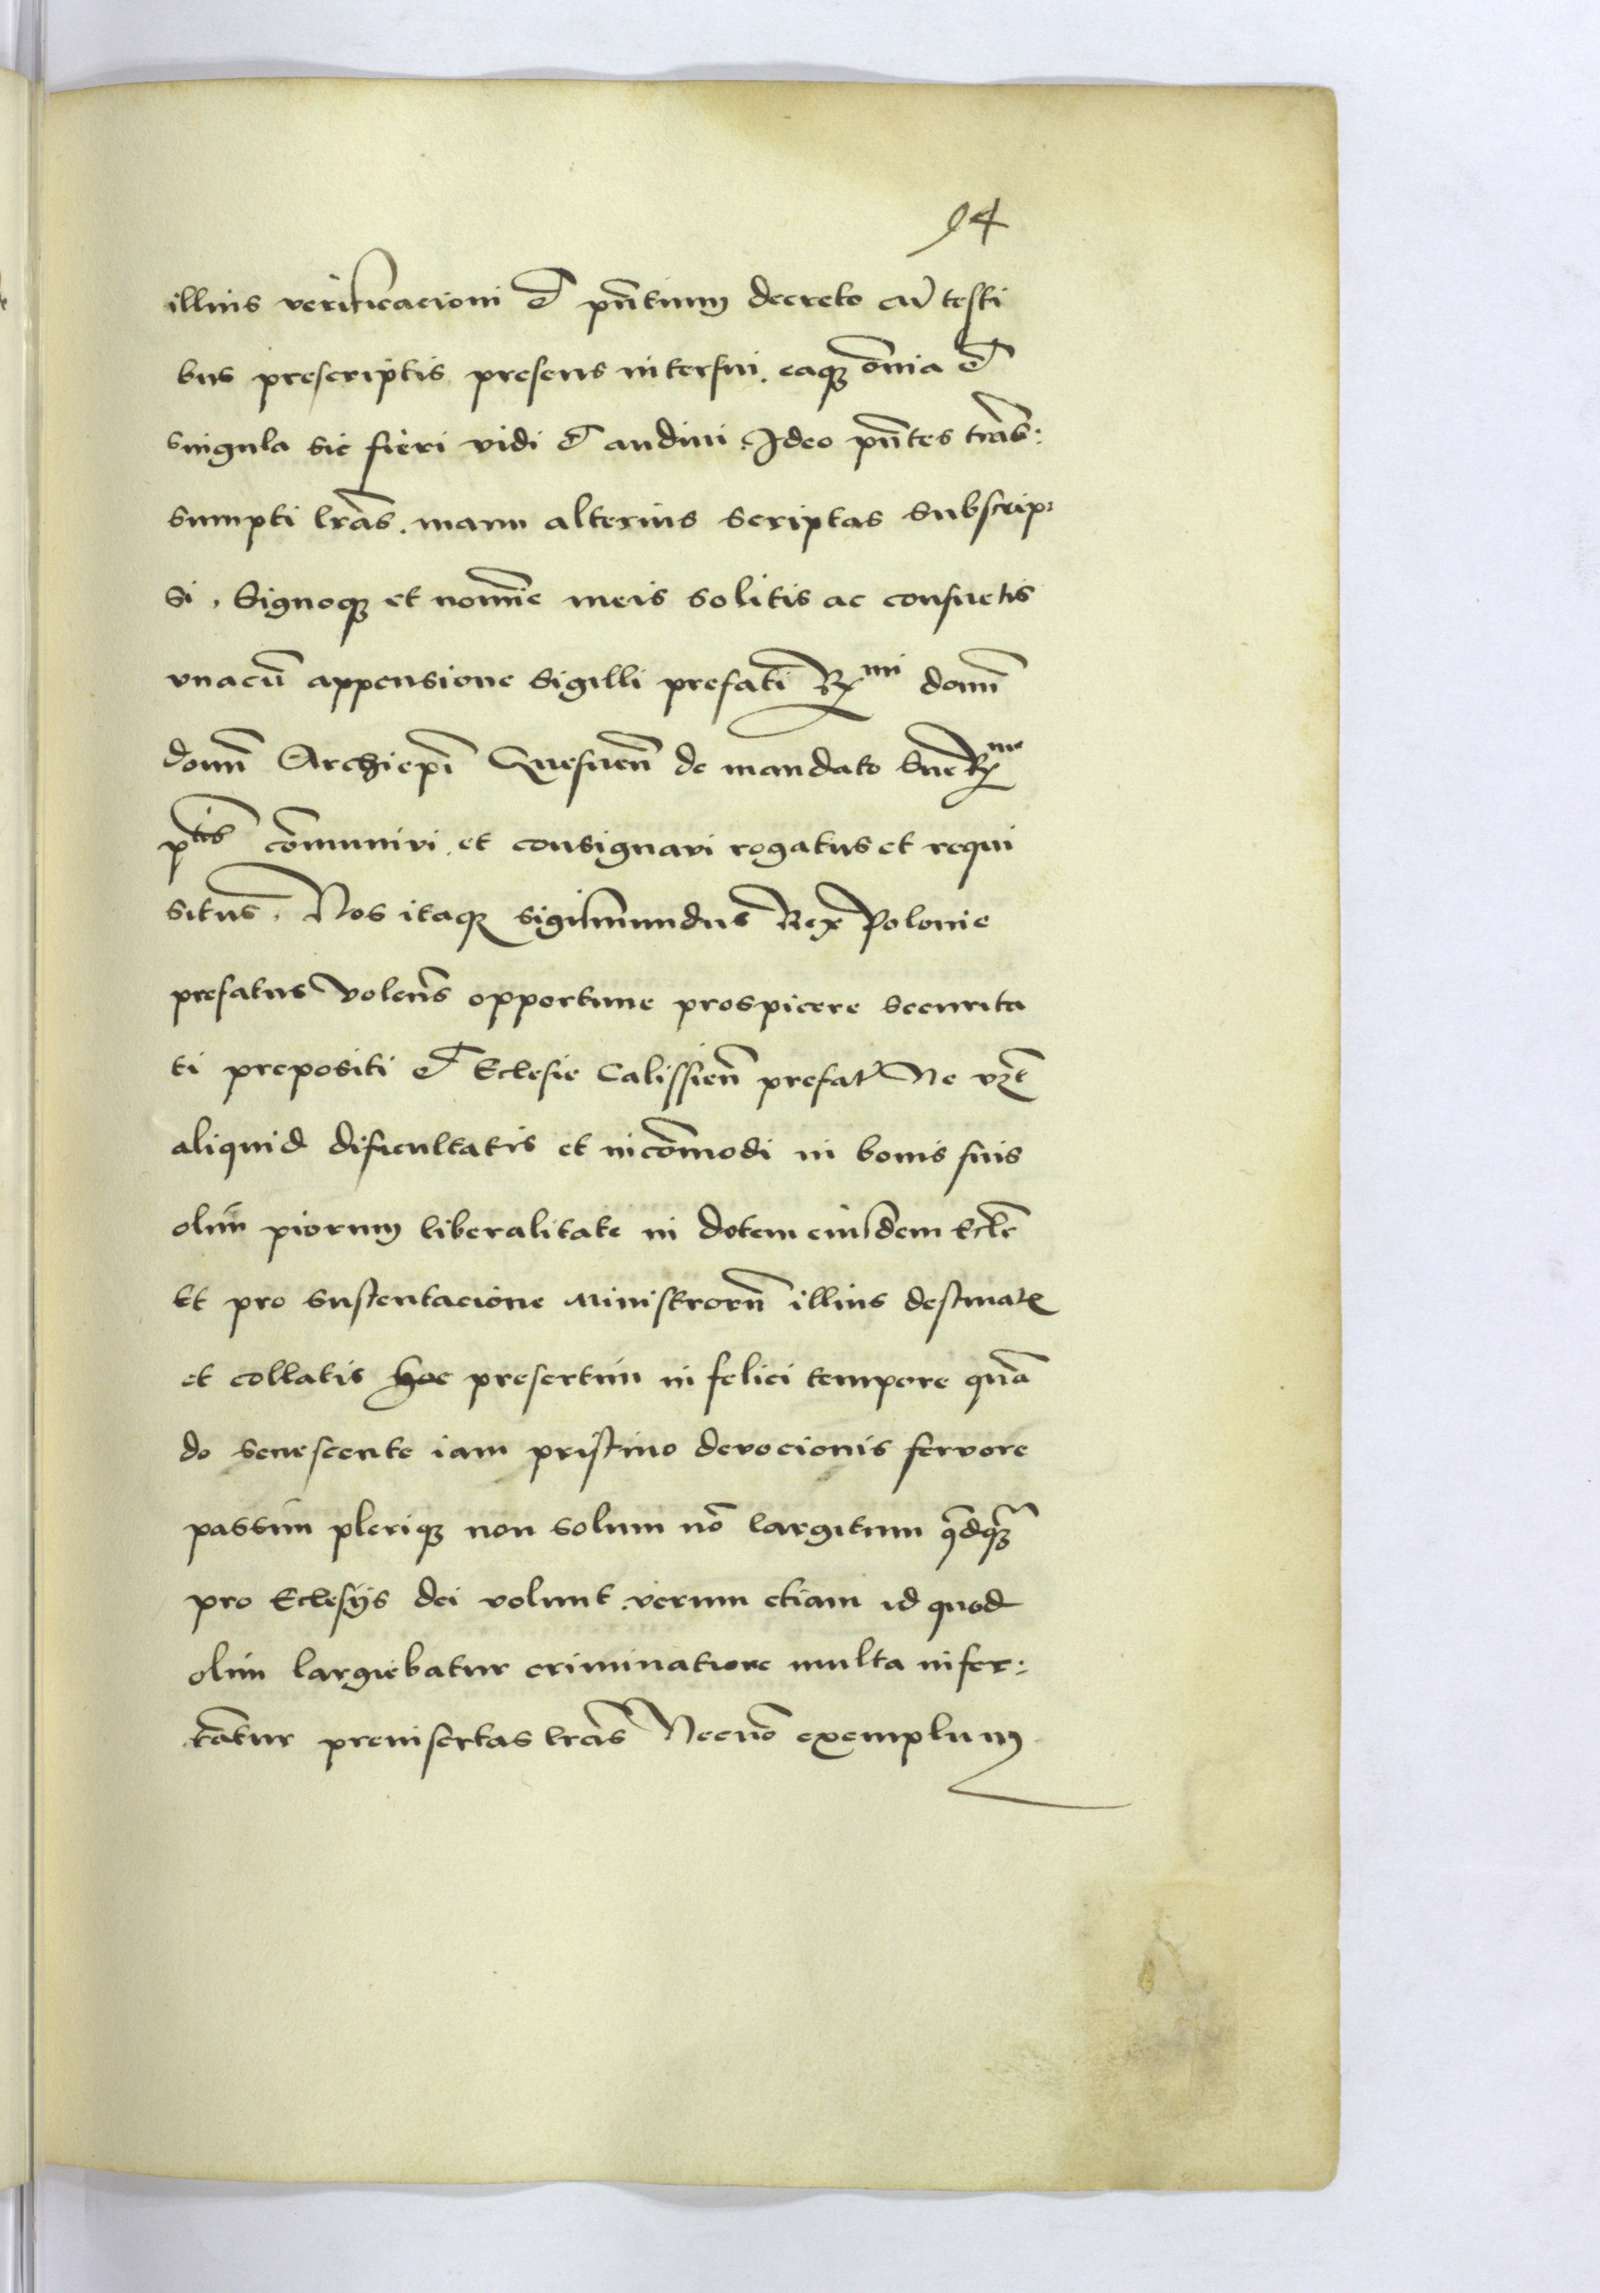 94
illius verificacioni et pñtium decreto cũ testi
bus prescriptis presens interfui. eaqꝫ oĩnia et
singula sic fieri vidi et audivi. Ideo pñtes trãs:
sumpti lrãs. manu alterius scriptas subscrip:
si, Signoqꝫ et nomĩe meis solitis ac consuetis
vnacũ appensione sigilli prefati Rmi domñ
domñ Archiepĩ Gnesneñ de mandato sue Rme
ptis cõmunivi. et consignavi rogatus et requi
situs. Nos itaqꝫ sigismundus Rex Polonie
prefatus volens opportune prospicere securita
ti prepositi et Eclesie Calissieñ prefat Ne vꝫt
aliquid dificultatis et incõmodi in bonis suis
olim piorum liberalitate in dotem eiusdem Eclẽ
Et pro sustentacione Ministrorũ illius destinatꝭ
et collatis hoc presertim in felici tempore quã
do senescente iam pristino devocionis fervore
passim plerique non solum nõ largitum qdqꝫ
pro Eclesijs dei volunt. verum etiam id quod
olim largiebatur criminatione multa insec:
tãtur preinsertas lrãs Necnõ exemplum